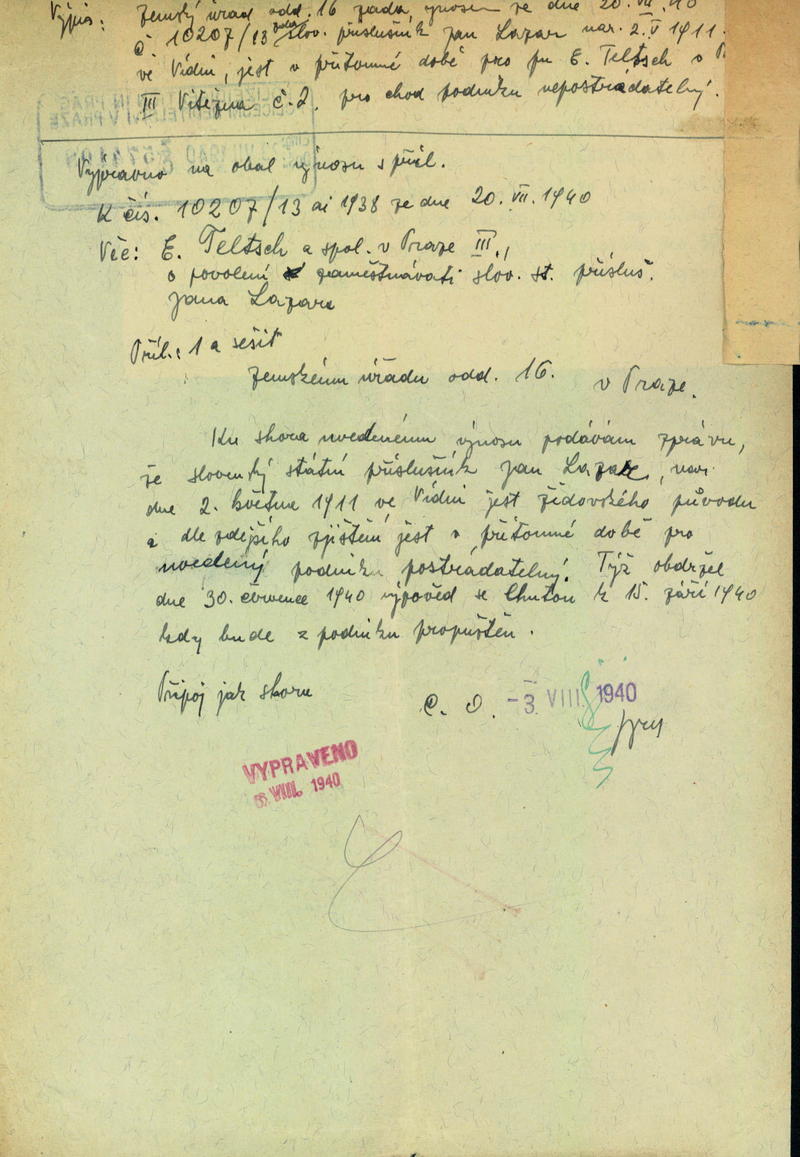 Výpis: Zemský úřad odd. 16 žádá, výnosem ze dne 20. VII. 40
č 10207/13 zda slov. příslušník Jan Lazar nar. 2. V 1911
ve Vídni, jest v přítomné době pro fu E. Teltsch v
III Vítězná č. 2. pro chod podniku nepostrádatelný.
Vypraveno na obal výnosu s příl.
K čís. 10207/13 ai 1938 ze dne 20. VII. 1940
Věc: E. Teltsch a spol. v Praze III.,
o povolení zaměstnávati slov. st. přísluš.
Jana Lazara
Příl.: 1 a sešit
Zemskému úřadu odd. 16. v Praze.
Ku shora uvedenému výnosu podávám zprávu,
že slovenský státní příslušník Jan Lazar, nar.
dne 2. května 1911 ve Vídni jest židovského původu
a dle zdejšího zjištění jest v přítomné době pro
uvedený podnik postrádatelný. Týž obdržel
dne 30. července 1940 výpověď se lhůtou k 15. září 1940
kdy bude z podniku propuštěn.
Připoj jak shora
C. O. -3. VIII. 1940
VYPRAVENO
VIII. 1940